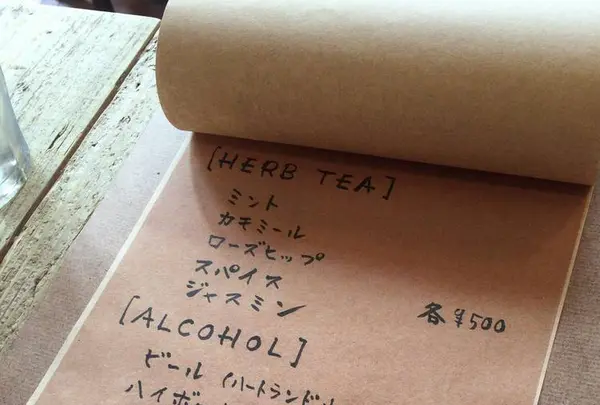 [HERB TEA]
ミント
カモミール
ローズヒップ
スパイス
ジャスミン
各 ¥500
[ALCOHOL]
ビール (ハートランド)